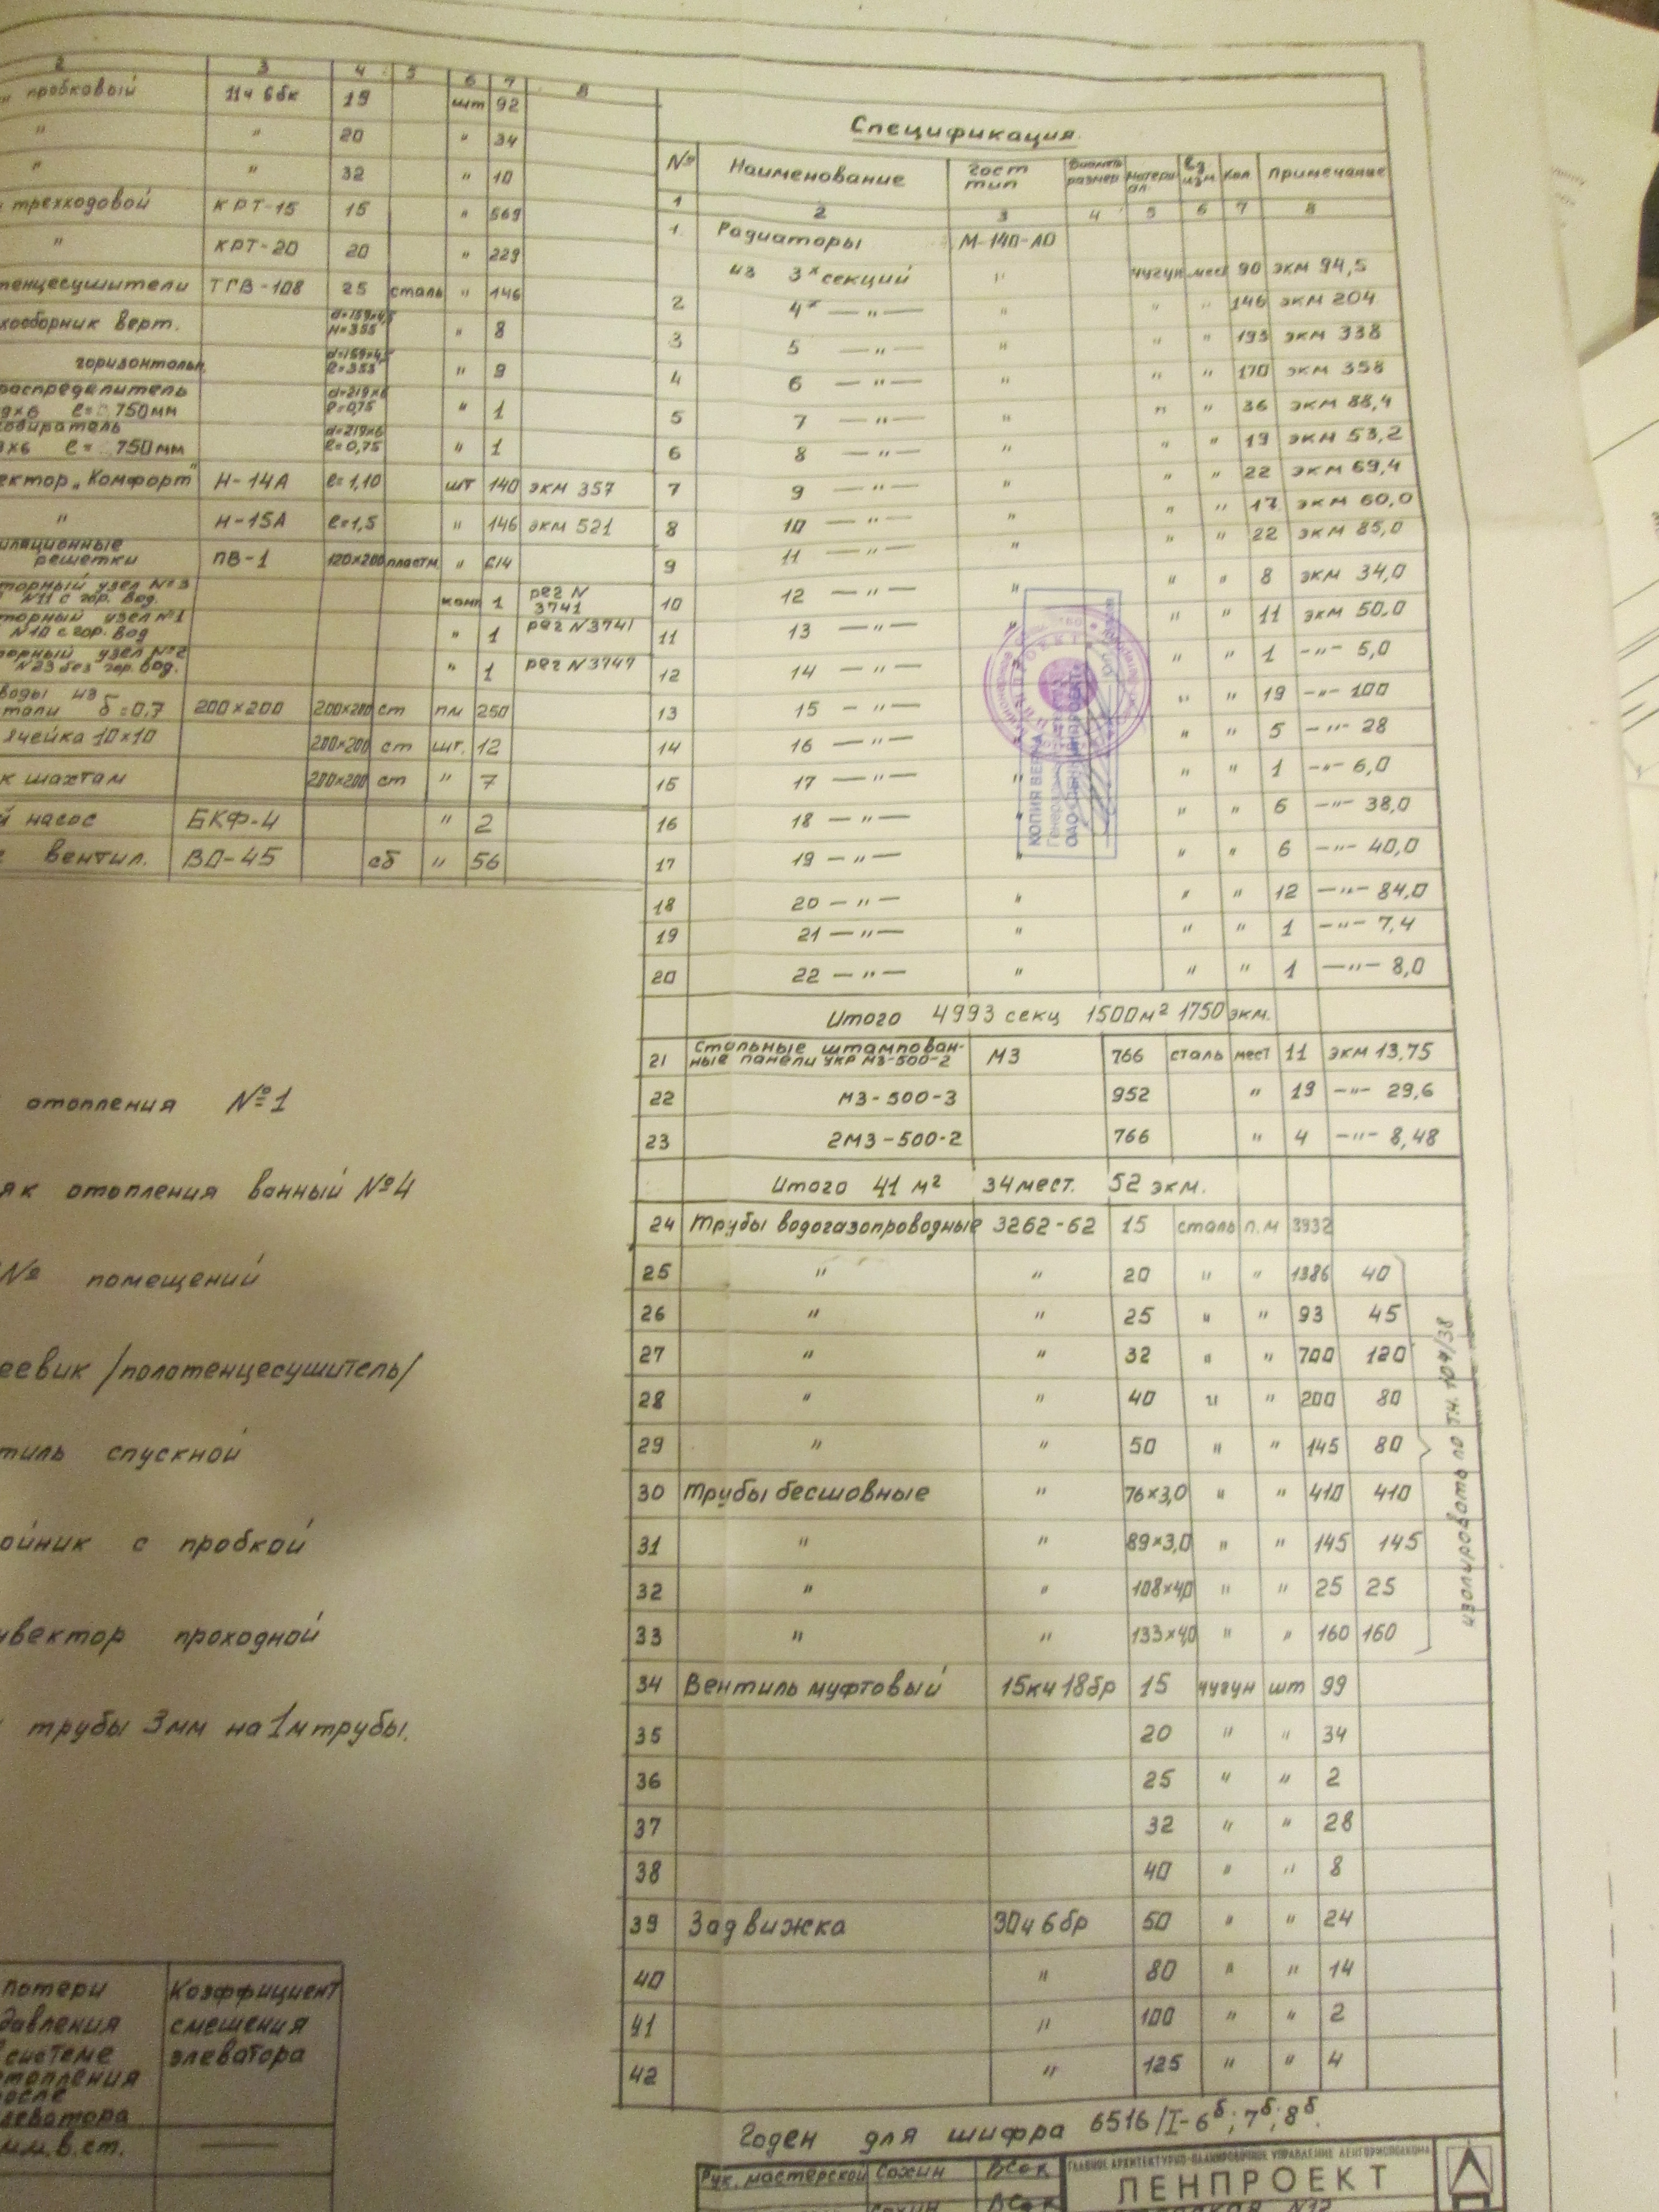 2 3 4 5 6 7 8
пробковый 11ч 6бк 19 шт 92
" " 20 " 34
" " 32 " 10
трехходовой КРТ-15 15 " 569
" КРТ-20 20 " 229
тенцесушители ТГВ-108 25 сталь " 146
хосборник верт. d=159×4,5 H=355 " 8
горизонтальн. d=159×4,5 ℓ=353 " 9
распределитель d=219×6
9×6 ℓ= 750мм ℓ=0,75 " 1
собиратель d=219×6
9×6 ℓ= 750мм ℓ=0,75 " 1
ектор „Комфорт" Н-14А ℓ=1,10 шт 140 экм 357
" Н-15А ℓ=1,5 " 146 экм 521
иляционные
решетки ПВ-1 120×200 пластм. " 614
торный узел №3
№11 с гор. вод. комп 1 рег N 3741
торный узел №1
№10 с гор. вод " 1 рег N3741
торный узел №2
№23 без гор. вод. " 1 рег N3747
воды из
тали б=0,7 200×200 200×200 ст пм 250
ячейка 10×10 200×200 ст шт. 12
к шахтам 200×200 ст " 7
й насос БКФ-4 " 2
вентил. ВО-45 сб " 56
отопления №1
як отопления ванный №4
№ помещений
еевик /полотенцесушитель/
тиль спускной
ойник с пробкой
нвектор проходной
трубы 3мм на 1м трубы.
потери Коэффициент
давления смешения
системе элеватора
отопления
после
элеватора
мм.в.ст. —
Спецификация
№ Наименование гост тип Диаметр размер матери ал. Ед изм Кол Примечание
1 2 3 4 5 6 7 8
1 Радиаторы М-140-АО
из 3х секций " чугун мест 90 экм 94,5
2 4х —"— " " " 146 экм 204
3 5 —"— " " " 193 экм 338
4 6 —"— " " " 170 экм 358
5 7 —"— " " " 36 экм 88,4
6 8 —"— " " " 19 экм 53,2
7 9 —"— " " " 22 экм 69,4
8 10 —"— " " " 17 экм 60,0
9 11 —"— " " " 22 экм 85,0
10 12 —"— " " " 8 экм 34,0
11 13 —"— " " " 11 экм 50,0
12 14 —"— " " " 1 —"— 5,0
13 15 —"— " " 19 —"— 100
14 16 —"— " " 5 —"— 28
15 17 —"— " " " 1 —"— 6,0
16 18 —"— " " " 6 —"— 38,0
17 19 —"— " " " 6 —"— 40,0
18 20 —"— " " " 12 —"— 84,0
19 21 —"— " " " 1 —"— 7,4
20 22 —"— " " " 1 —"— 8,0
КОПИЯ ВЕРНА
Итого 4993 секц 1500м² 1750 экм.
21 Стальные штампован-
ные панели укр МЗ-500-2 МЗ 766 сталь мест 11 экм 13,75
22 МЗ-500-3 952 " 19 —"— 29,6
23 2МЗ-500-2 766 " 4 —"— 8,48
Итого 41 м² 34 мест. 52 экм.
24 Трубы водогазопроводные 3262-62 15 сталь п.м 3932
25 " " 20 " " 1386 40
26 " " 25 " " 93 45
27 " " 32 " " 700 120
28 " " 40 " " 200 80
29 " " 50 " " 145 80
30 Трубы бесшовные " 76×3,0 " " 410 410
31 " " 89×3,0 " " 145 145
32 " " 108×4,0 " " 25 25
33 " " 133×4,0 " " 160 160
изолировать по т.ч. 104/38
34 Вентиль муфтовый 15кч 18бр 15 чугун шт 99
35 20 " " 34
36 25 " " 2
37 32 " " 28
38 40 " " 8
39 Задвижка 30ч 6бр 50 " " 24
40 " 80 " " 14
41 " 100 " " 2
42 " 125 " " 4
Годен для шифра 6516/I-6б; 7б; 8б.
Рук. мастерской Сохин
ГЛАВНОЕ АРХИТЕКТУРНО-ПЛАНИРОВОЧНОЕ УПРАВЛЕНИЕ ЛЕНГОРИСПОЛКОМА
ЛЕНПРОЕКТ
Сохин
№12